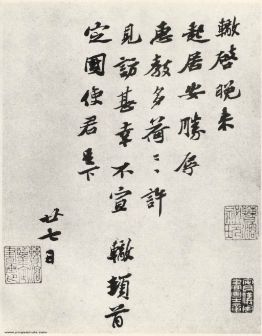 轍啓晚来
起居安勝辱
惠教多荷〻許
見訪甚幸不宣 轍頓首
定國使君 下
廿七日